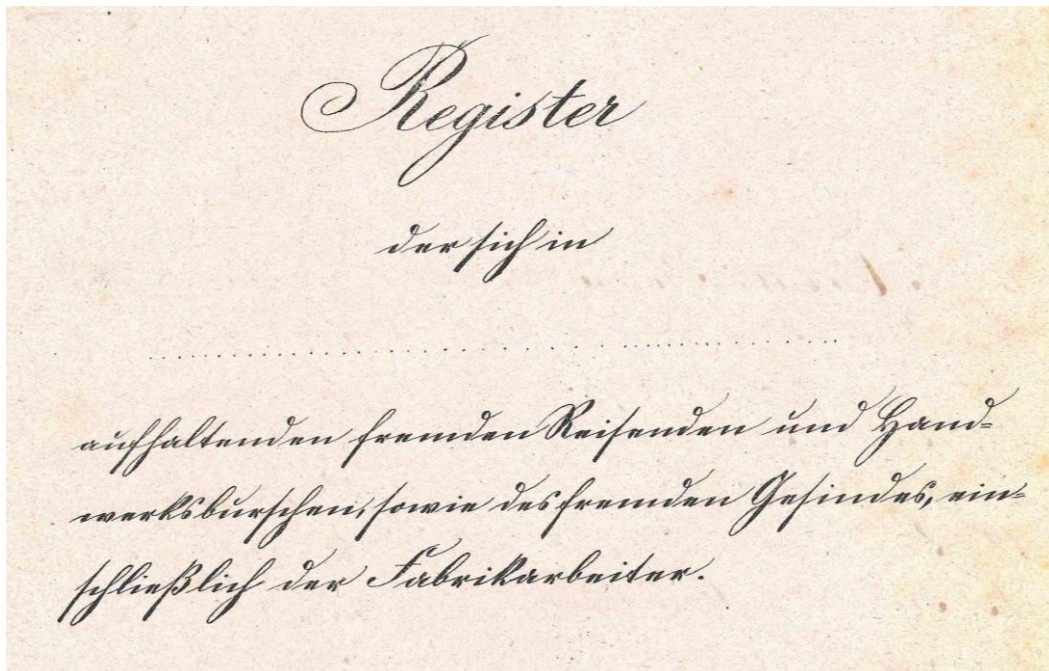 Register
der sich in
aufhaltenden fremden Reisenden und Hand-
werksburschen, sowie des fremden Gesindes, ein-
schließlich der Fabrikarbeiter.